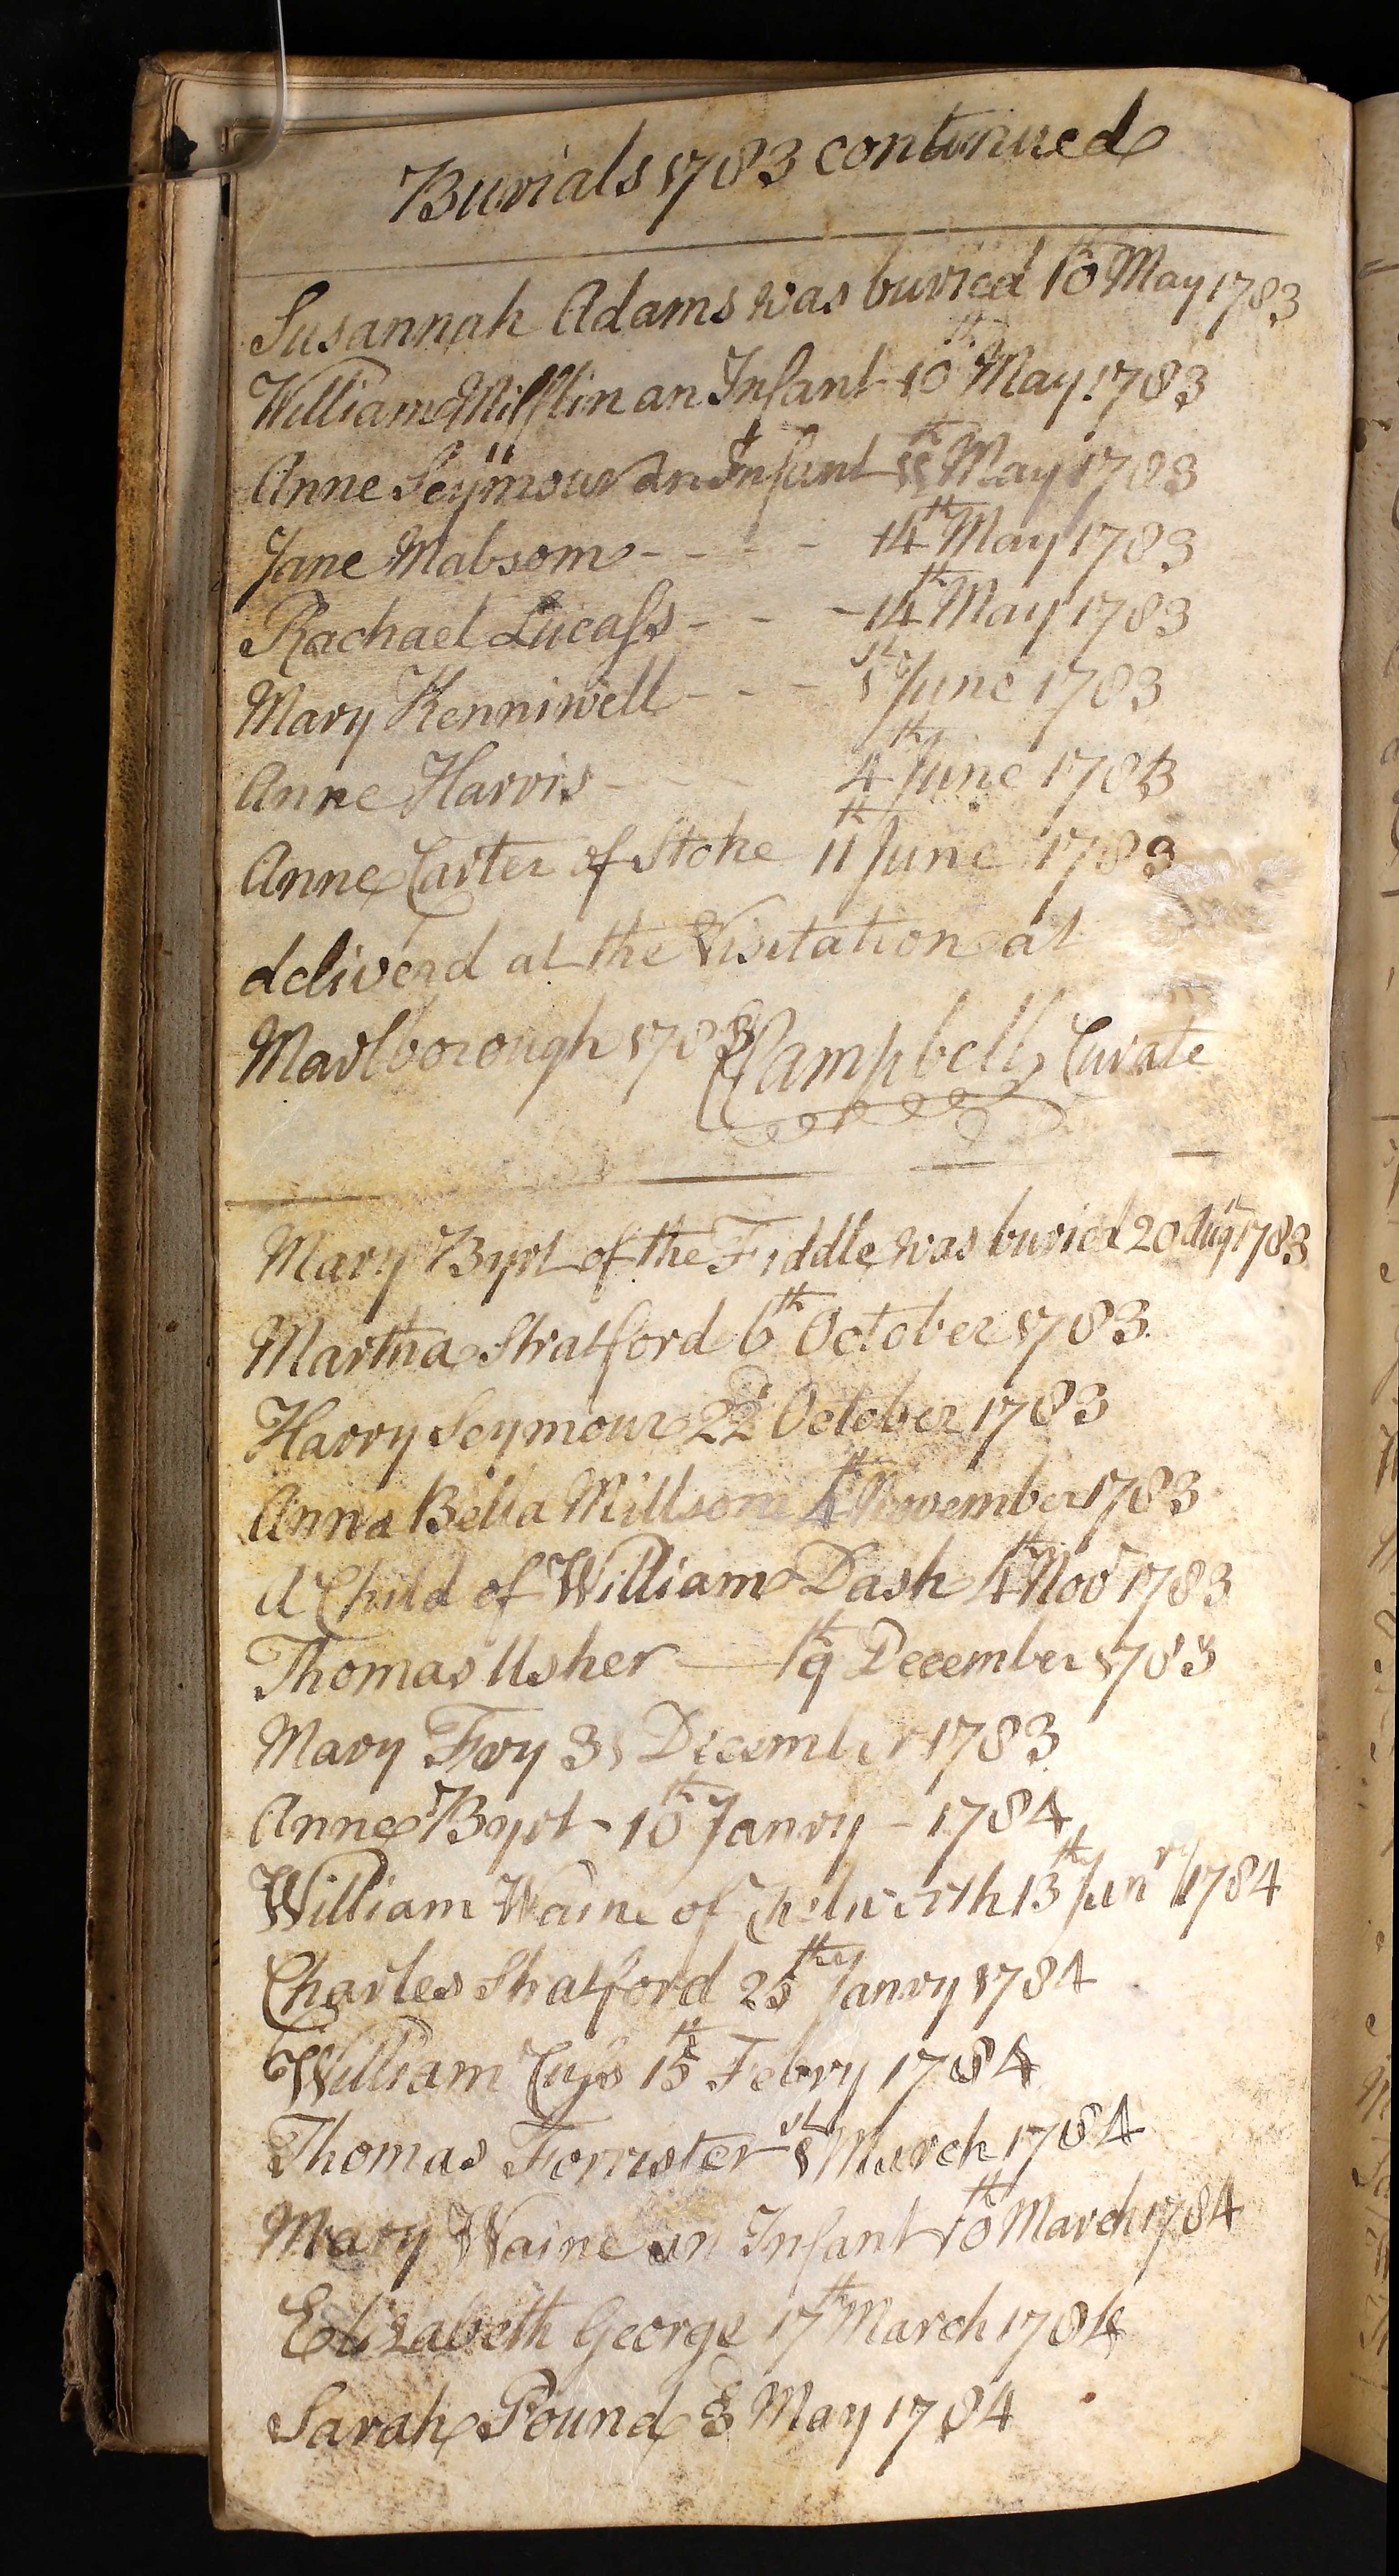 Burials 1783 continued
Susannah Adams was buried 10th May 1783
William Mifflin an Infant 10th May 1783
Anne Seymour an Infant th May 1783
Jane Mabsom - - - - 14th May 1783
Rachael Lucass - - - 14th May 1783
Mary Kenniwell - - - 1st June 1783
Anne Harris - - - 4th June 1783
Anne Carter of Stoke 11th June 1783
deliverd at the Visitation at
Marlborough 1783 Campbell, Curate
Mary Byrt of the Fiddle was buried 20th Aug 1783
Martha Stratford 6th October 1783
Harry Seymour 22d October 1783
Anna Bella Millsom 4th November 1783
A Child of William Dash 4th Novr 1783
Thomas Usher — 19th December 1783
Mary Fry 31 December 1783
Anne Byrt - 10th Janry - 1784
William Waine of Chelworth 13th Janry 1784
Charles Stratford 25th Janry 1784
William 15th Febry 1784
Thomas Forrister 1st March 1784
Mary Waine an Infant 10th March 1784
Elizabeth George 17th March 1784
Sarah Pound May 1784